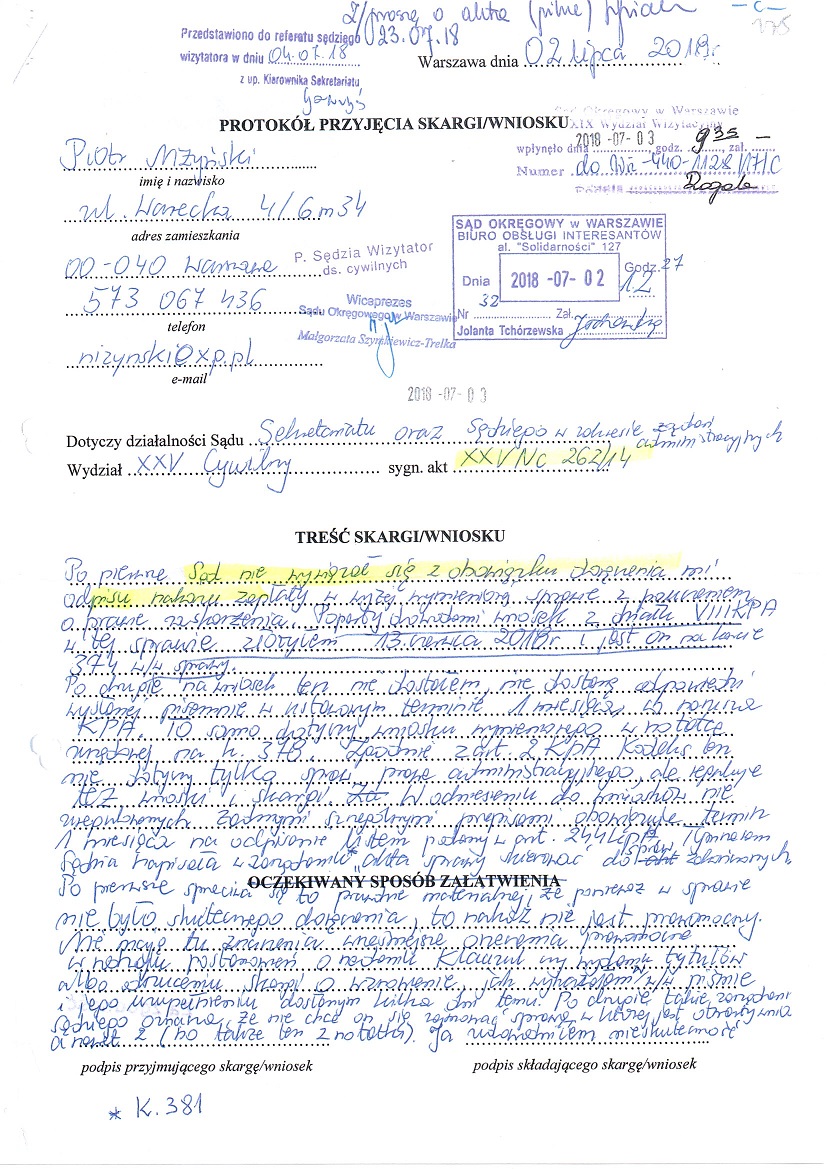 2/ proszę o akta (pilne)
23.07.18
- C -
175
Przedstawiono do referatu sędziego
wizytatora w dniu 04.07.18
z up. Kierownika Sekretariatu
Warszawa dnia 02 lipca 2018r.
PROTOKÓŁ PRZYJĘCIA SKARGI/WNIOSKU
Sąd Okręgowy w Warszawie
XIX Wydział Wizytacyjny
2018 -07- 03
wpłynęło dnia godz. 9 35 zał. -
Numer do Wa-440-1128/17/C
Rogala
Piotr Niżyński
imię i nazwisko
ul. Warecka 4/6 m 34
adres zamieszkania
00-040 Warszawa
573 067 436
telefon
nizynski@xp.pl
e-mail
P. Sędzia Wizytator
ds. cywilnych
Wiceprezes
Sądu Okręgowego w Warszawie
Małgorzata Szymkiewicz-Trelka
2018 -07- 03
SĄD OKRĘGOWY w WARSZAWIE
BIURO OBSŁUGI INTERESANTÓW
al. "Solidarności" 127
Dnia 2018 -07- 02 Godz. 12 27
Nr 32 Zał.
Jolanta Tchórzewska
Dotyczy działalności Sądu Sekretariatu oraz Sędziego w zakresie żądań administracyjnych
Wydział XXV Cywilny sygn. akt XXV Nc 262/14
TREŚĆ SKARGI/WNIOSKU
Po pierwsze Sąd nie wywiązał się z obowiązku doręczenia mi
odpisu nakazu zapłaty w wyżej wymienionej sprawie z pouczeniem
o prawie zaskarżenia. Poparty dowodami wniosek z działu VIII KPA
w tej sprawie złożyłem 13 czerwca 2018r. i jest on na karcie
374 w/w sprawy.
Po drugie na wniosek ten nie dostałem, nie dostanę odpowiedzi
wysłanej pisemnie w ustawowym terminie 1 miesiąca, co narusza
KPA. To samo dotyczy wniosku wymienionego w notatce
urzędowej na k. 378. Zgodnie z art. 2 KPA Kodeks ten
nie dotyczy tylko spraw prawa administracyjnego, ale reguluje
też wnioski i skargi. W odniesieniu do wniosków nie
uregulowanych żadnymi szczególnymi przepisami obowiązuje termin
1 miesiąca na odpisanie listem podany w art. 244 KPA. Tymczasem
Sędzia napisała w zarządzeniu* "akta sprawy skierować do spraw zakończonych
OCZEKIWANY SPOSÓB ZAŁATWIENIA
Po pierwsze sprzeciwia się to prawdzie materialnej, że ponieważ w sprawie
nie było skutecznego doręczenia, to nakaz nie jest prawomocny.
Nie mają tu znaczenia wcześniejsze orzeczenia prawomocne
w rodzaju postanowień o nadaniu klauzul czy wydaniu tytułów
albo odrzuceniu skargi o wznowienie, jak wykazałem w w/w piśmie
i jego uzupełnieniu dostanym kilka dni temu. Po drugie takie zarządzenie
sędziego oznacza, że nie chce on się zajmować sprawą, w której jest otwarty wniosek
a nawet 2 (bo także ten z notatki). Ja udowodniłem nieskuteczność
podpis przyjmującego skargę/wniosek
podpis składającego skargę/wniosek
* K. 381